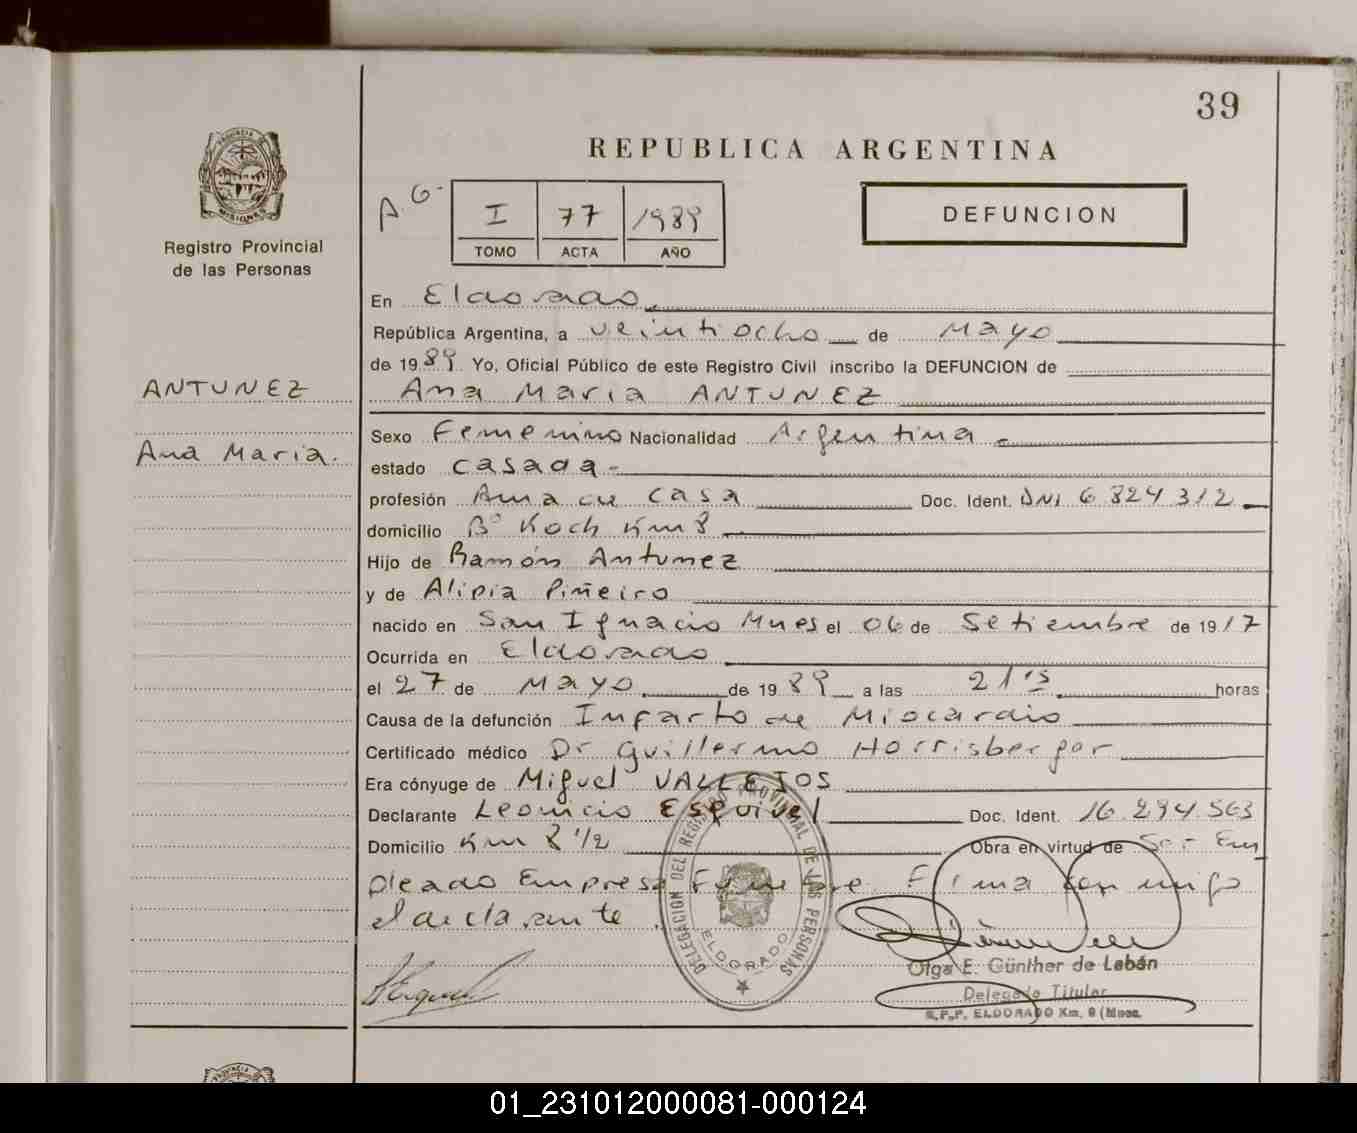 39
REPUBLICA ARGENTINA
PROVINCIA DE
MISIONES
Registro Provincial
de las Personas
A.G.
I 77 1989
TOMO ACTA AÑO
DEFUNCION
En Eldorado
República Argentina, a veintiocho de Mayo
de 1989 Yo, Oficial Público de este Registro Civil inscribo la DEFUNCION de
ANTUNEZ
Ana Maria.
Ana Maria ANTUNEZ
Sexo Femenino Nacionalidad Argentina
estado casada
profesión Ama de casa Doc. Ident. DNI 6 824 312
domicilio B° Koch Km 8
Hijo de Ramón Antunez
y de Alipia Piñeiro
nacido en San Ignacio Mnes el 06 de Setiembre de 1917
Ocurrida en Eldorado
el 27 de Mayo de 1989 a las 21,15 horas
Causa de la defunción Infarto de Miocardio
Certificado médico Dr Guillermo Horrisberger
Era cónyuge de Miguel VALLEJOS
Declarante Leoncio Esquivel Doc. Ident. 16.294.563
Domicilio Km 8 1/2 Obra en virtud de Ser Em
pleado Empresa Funebre. Firma conmigo
el declarante.
DELEGACION DEL REGISTRO PROVINCIAL DE LAS PERSONAS
ELDORADO
Olga E. Günther de Labán
Delegada Titular
R.P.P. ELDORADO Km. 9 (Mnes.
01_231012000081-000124